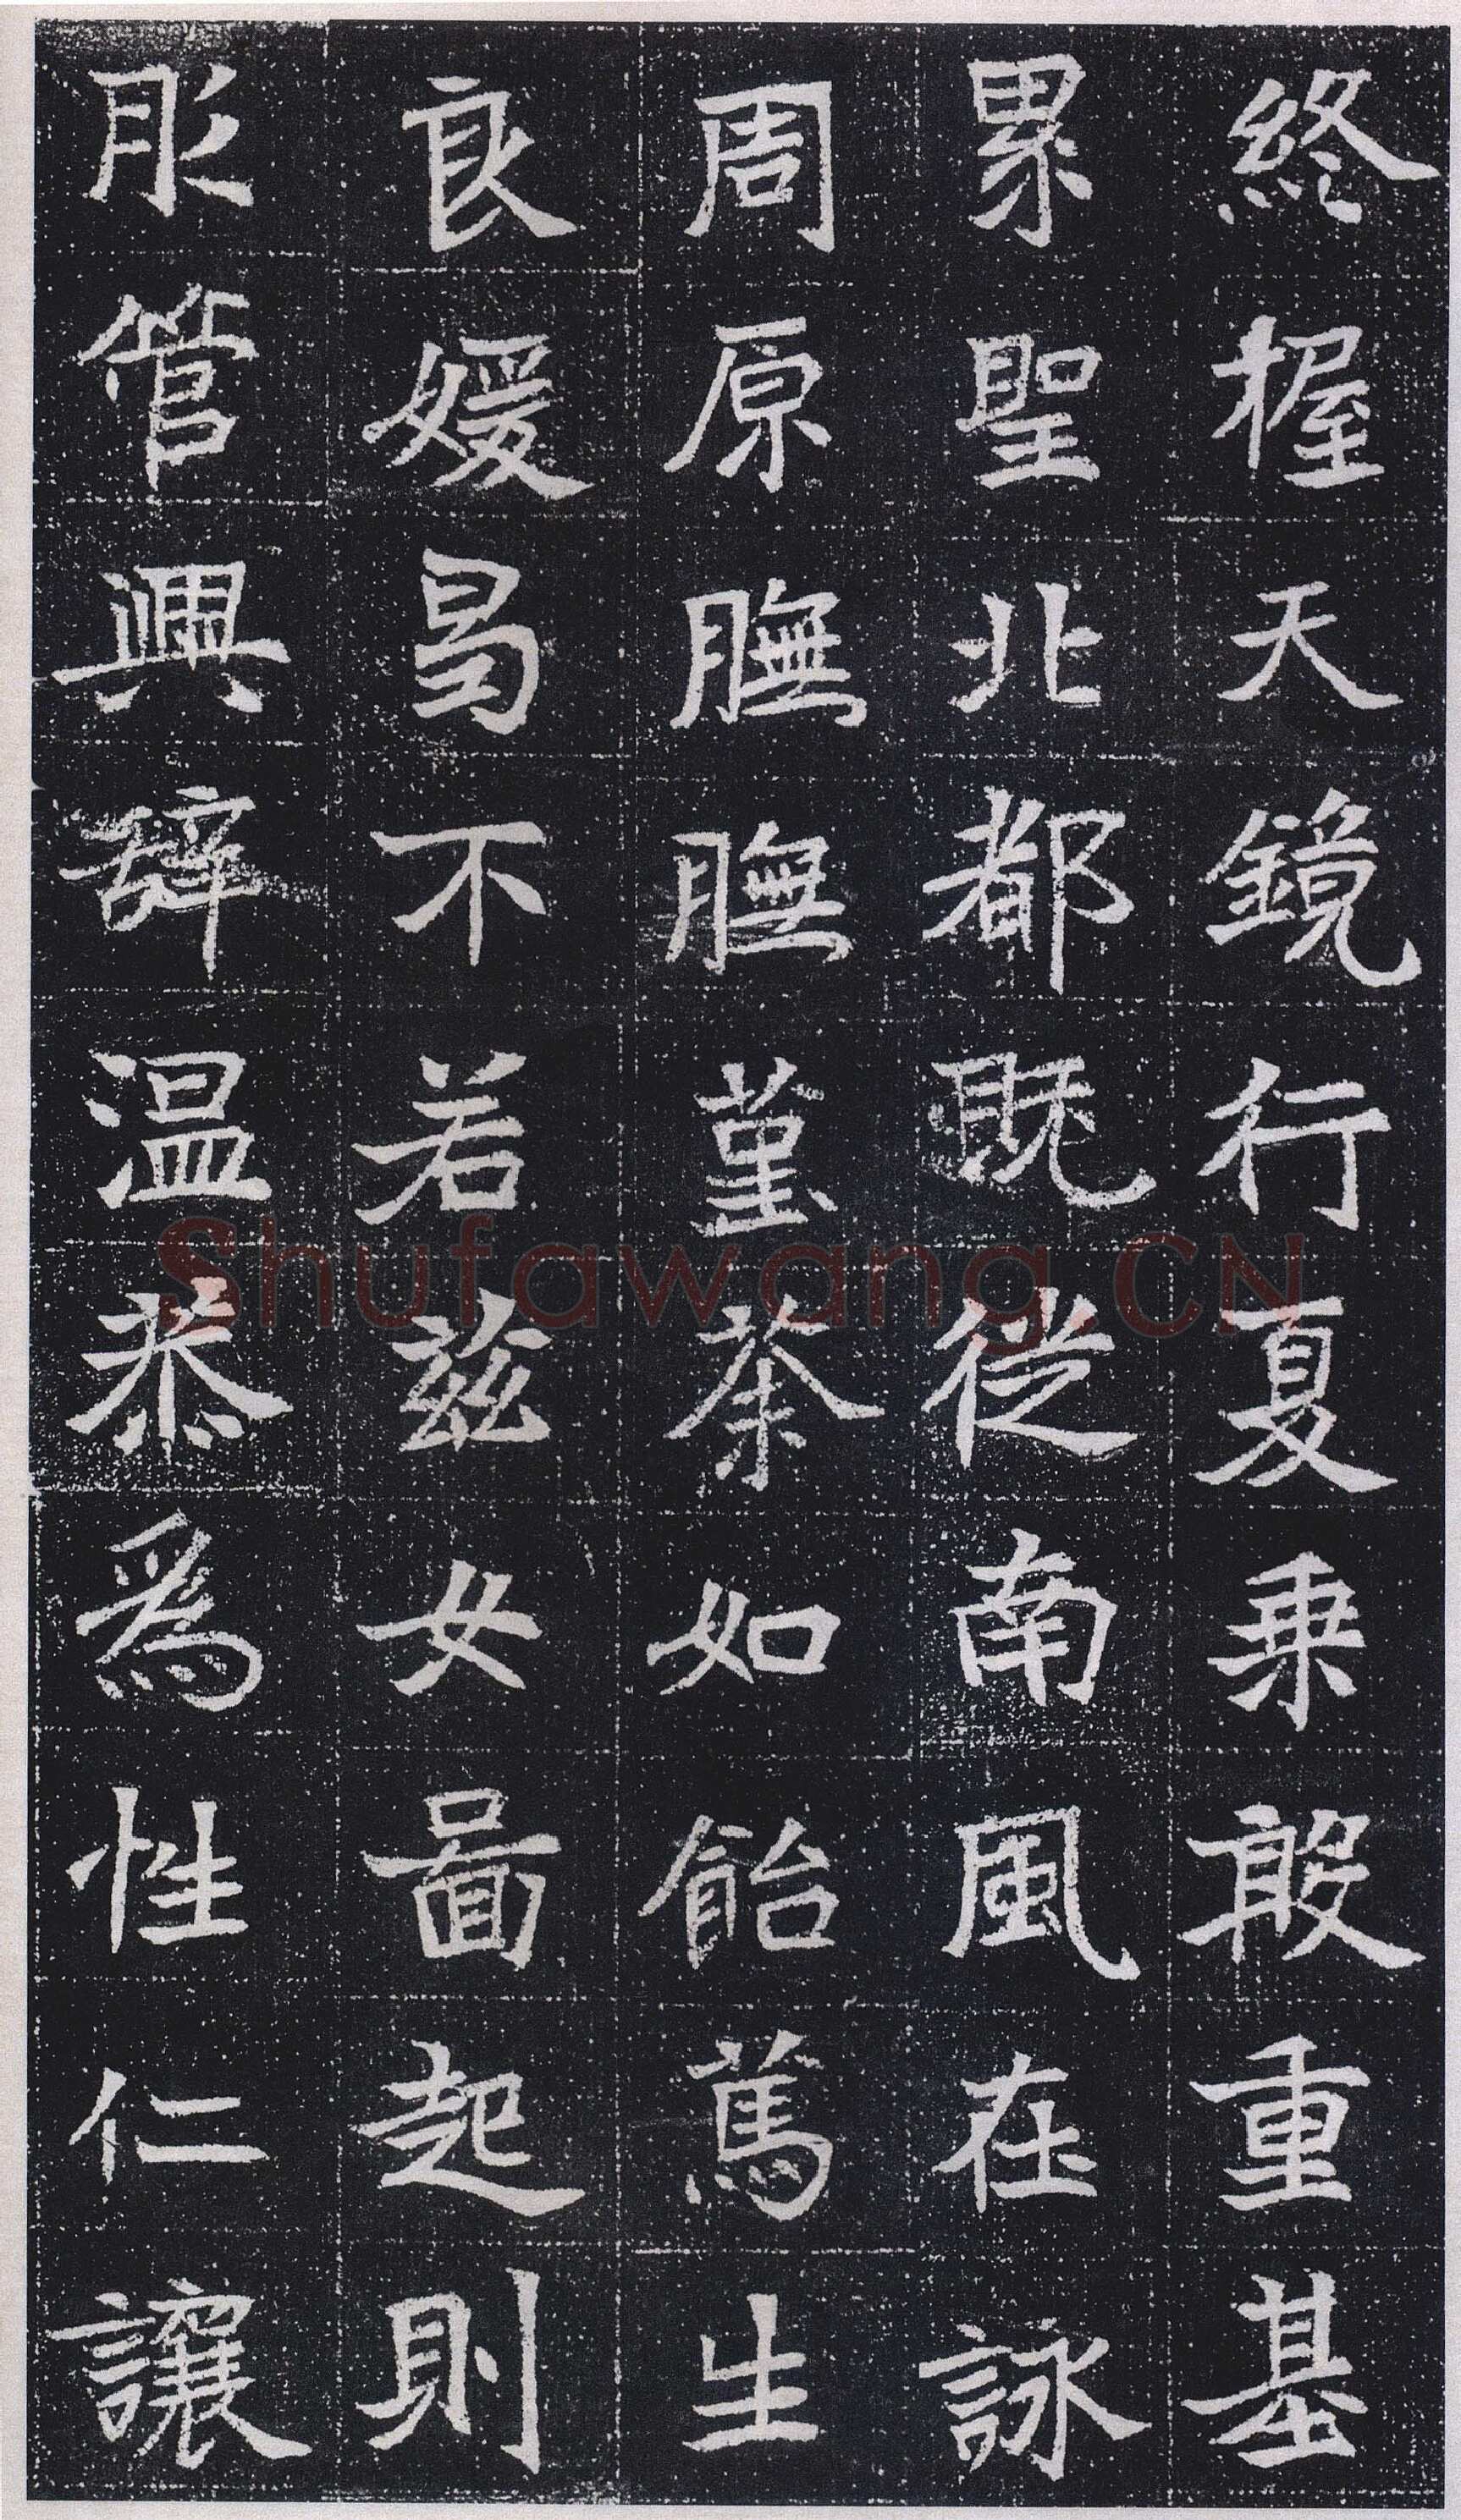 終握天鏡行夏乘殷重基
累聖北都既徙南風在詠
周原膴膴堇荼如飴篤生
良媛曷不若茲女圖起則
肜管興辭温恭爲性仁讓
Shufawang.CN